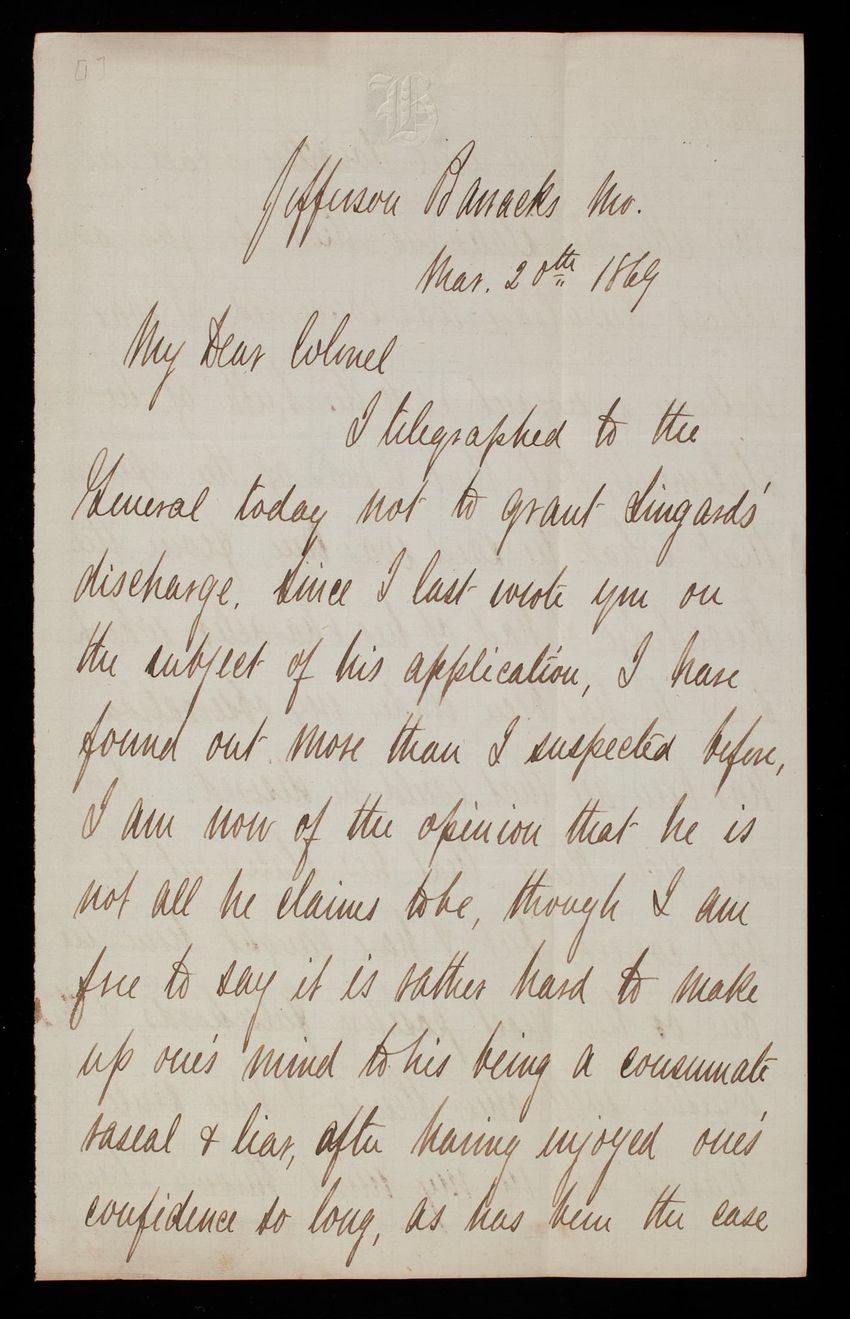 [1]
B
Jefferson Barracks Mo.
Mar. 20th 1869
My Dear Colonel
I telegraphed to the
General today not to grant Lingards'
discharge. Since I last wrote you on
the subject of his application, I have
found out more than I suspected before,
I am now of the opinion that he is
not all he claims to be, though I am
free to say it is rather hard to make
up one's mind to his being a consummate
rascal & liar, after having enjoyed one's
confidence so long, as has been the case